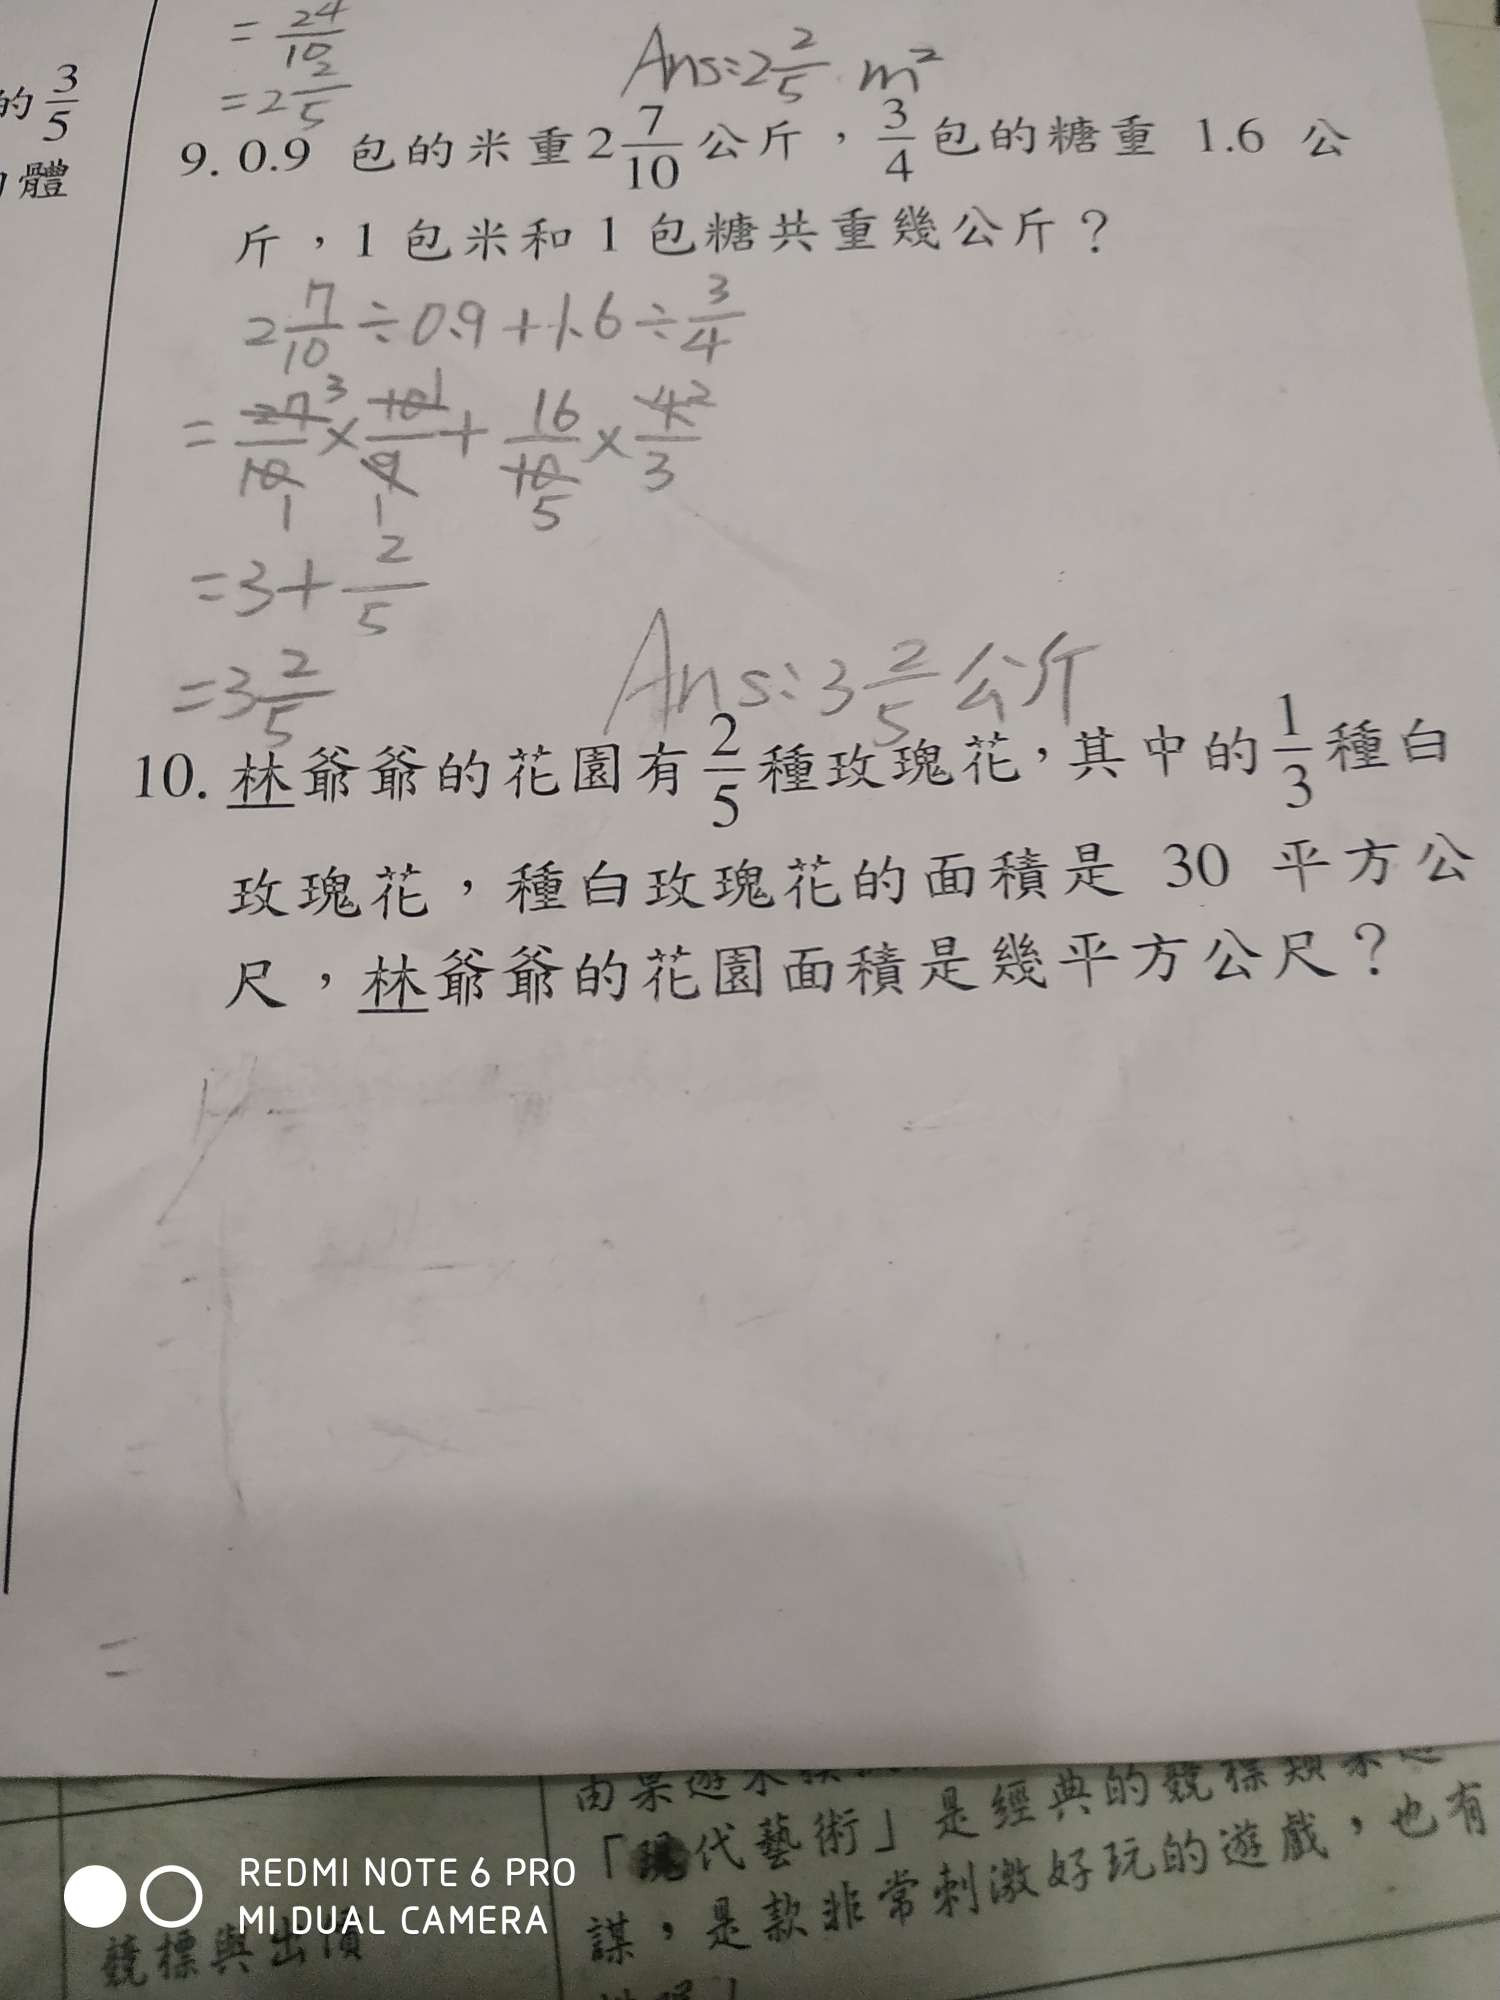 的 3/5
體
= 24/10
= 2 2/5
Ans:2 2/5 m²
9. 0.9 包的米重 2 7/10 公斤，3/4 包的糖重 1.6 公
斤，1 包米和 1 包糖共重幾公斤？
2 7/10 ÷ 0.9 + 1.6 ÷ 3/4
= 27/10 3 1 × 10/9 1 1 + 16/10 5 × 4/3 2
= 3 + 2/5
= 3 2/5
Ans:3 2/5 公斤
10. 林爺爺的花園有 2/5 種玫瑰花，其中的 1/3 種白
玫瑰花，種白玫瑰花的面積是 30 平方公
尺，林爺爺的花園面積是幾平方公尺？
=
「現代藝術」是經典的競標類
謀，是款非常刺激好玩的遊戲，也有
競標與出價
REDMI NOTE 6 PRO
MI DUAL CAMERA